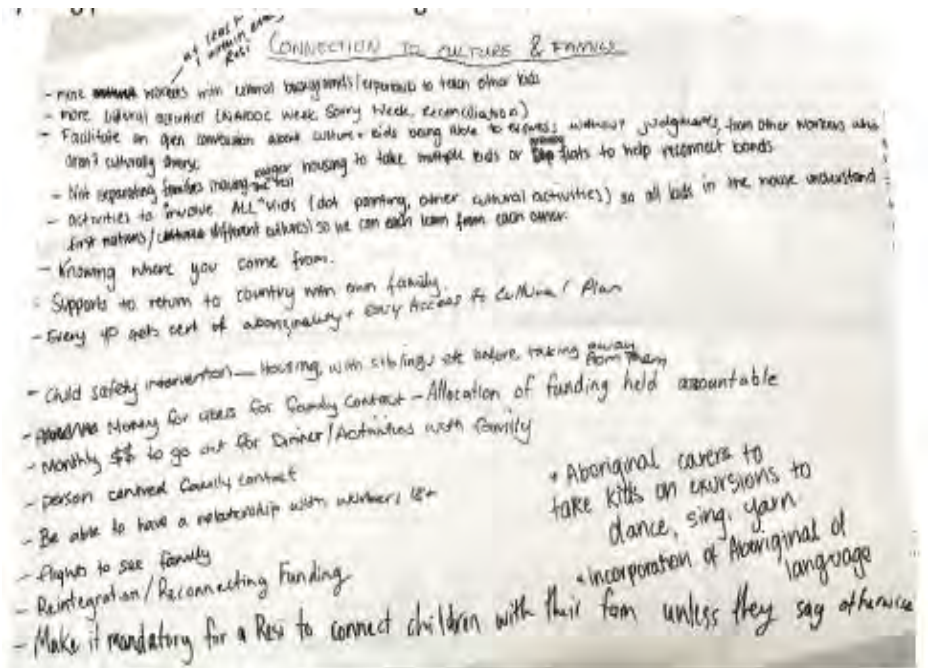 at least 1 within every Resi
CONNECTION TO CULTURE & FAMILY
- more workers with cultural backgrounds/experiences to teach other kids
- more cultural activities (NAIDOC week, Sorry Week, reconciliation)
- Facilitate an open conversation about culture + kids being able to express without judgments, from other workers who
aren't culturally
- Not separating families making housing to take multiple kids or flats to help reconnect bonds
- activities to involve ALL kids (dot painting, other cultural activities) so all kids in the house understand
first nations/ different cultures) so we can each learn from each other.
- Knowing where you come from.
- Supports to return to country with own family.
- Every YP gets cert of aboriginality + easy Access to Cultural Plan
- Child safety intervention — Housing, with siblings etc before taking away from them
- Money for Ubers for family contact - Allocation of funding held accountable
- Monthly $$ to go out for Dinner/Activities with family
- person centred family contact
- Be able to have a relationship with workers, 18+
- flights to see family
- Reintegration/Reconnecting Funding
- Make it mandatory for a Resi to connect children with their fam unless they say otherwise
• Aboriginal carers to
take kids on excursions to
dance, sing, yarn
• Incorporation of Aboriginal
language